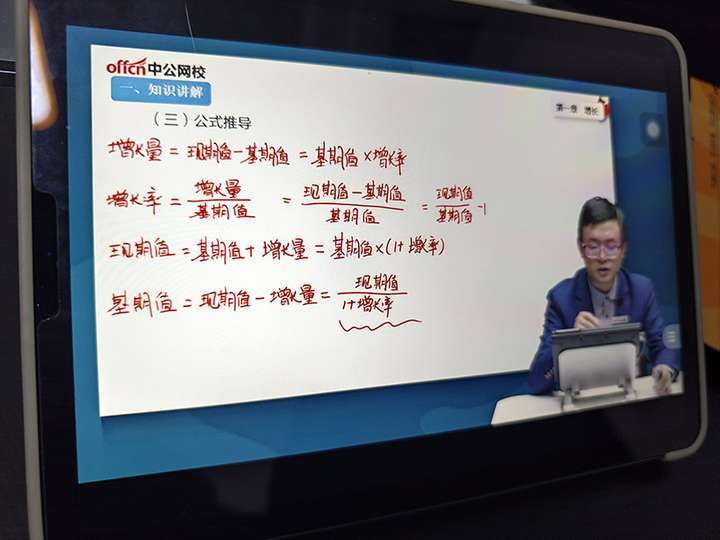 offcn中公网校
一、知识讲解
第一章 增长
（三）公式推导
增长量 = 现期值 - 基期值 = 基期值 × 增长率
增长率 = 增长量/基期值 = 现期值 - 基期值/基期值 = 现期值/基期值 - 1
现期值 = 基期值 + 增长量 = 基期值 × (1 + 增长率)
基期值 = 现期值 - 增长量 = 现期值/1 + 增长率